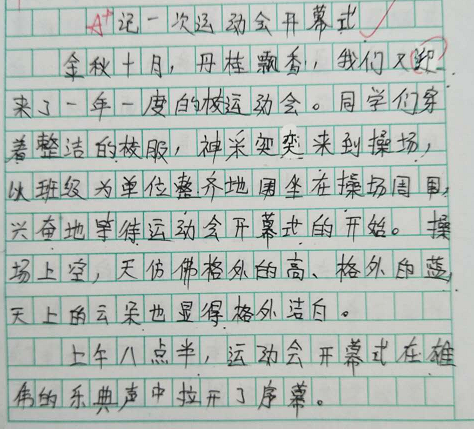 A+ 记一次运动会开幕式
金秋十月，丹桂飘香，我们又迎
来了一年一度的校运动会。同学们穿
着整洁的校服，神采奕奕来到操场，
以班级为单位整齐地围坐在操场周围，
兴奋地等待运动会开幕式的开始。操
场上空，天仿佛格外的高、格外的蓝
天上的云朵也显得格外洁白。
上午八点半，运动会开幕式在雄
伟的乐典声中拉开了序幕。